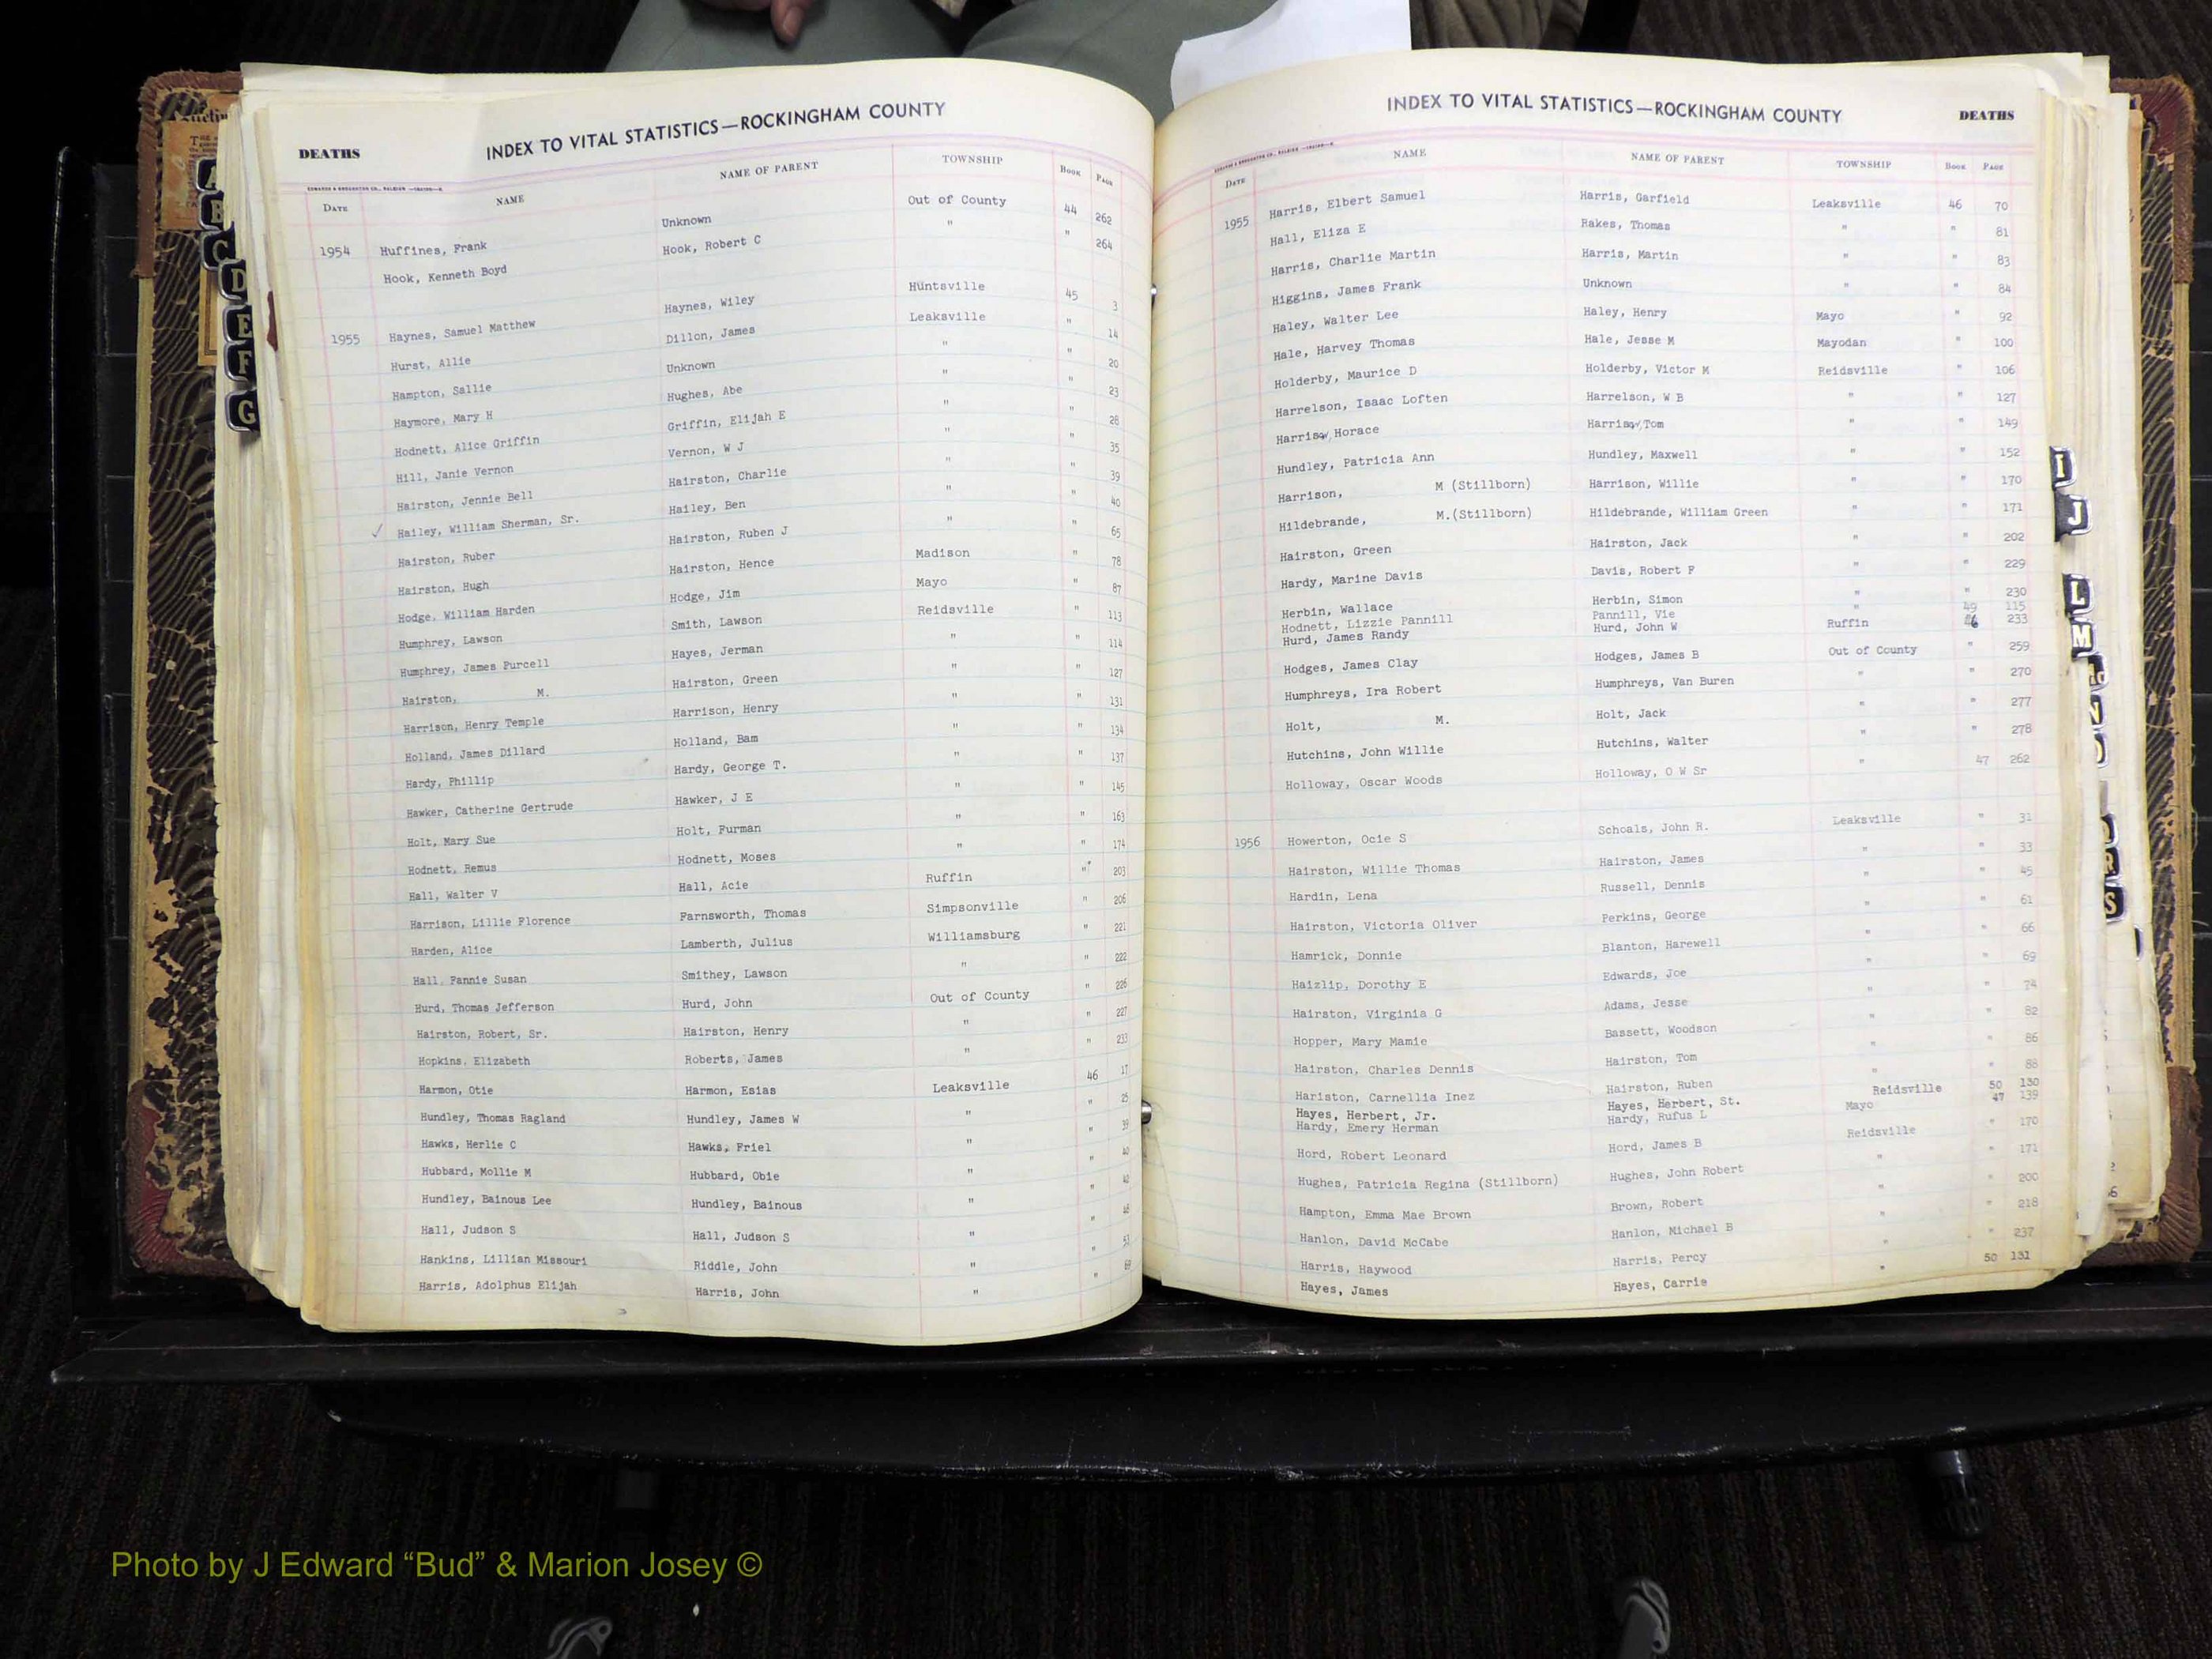 INDEX TO VITAL STATISTICS—ROCKINGHAM COUNTY
DEATHS
DATE NAME NAME OF PARENT TOWNSHIP BOOK PAGE
1954 Huffines, Frank Unknown Out of County 44 262
Hook, Kenneth Boyd Hook, Robert C " " 264
1955 Haynes, Samuel Matthew Haynes, Wiley Huntsville 45 3
Hurst, Allie Dillon, James Leaksville " 14
Hampton, Sallie Unknown " " 20
Haymore, Mary H Hughes, Abe " " 23
Hodnett, Alice Griffin Griffin, Elijah E " " 28
Hill, Janie Vernon Vernon, W J " " 35
Hairston, Jennie Bell Hairston, Charlie " " 39
✓ Hailey, William Sherman, Sr. Hailey, Ben " " 40
Hairston, Ruber Hairston, Ruben J " " 65
Hairston, Hugh Hairston, Hence Madison " 78
Hodge, William Harden Hodge, Jim Mayo " 87
Humphrey, Lawson Smith, Lawson Reidsville " 113
Humphrey, James Purcell Hayes, Jerman " " 114
Hairston, M. Hairston, Green " " 127
Harrison, Henry Temple Harrison, Henry " " 131
Holland, James Dillard Holland, Bam " " 134
Hardy, Phillip Hardy, George T. " " 137
Hawker, Catherine Gertrude Hawker, J E " " 145
Holt, Mary Sue Holt, Furman " " 163
Hodnett, Remus Hodnett, Moses " " 174
Hall, Walter V Hall, Acie Ruffin " 203
Harrison, Lillie Florence Farnsworth, Thomas Simpsonville " 206
Harden, Alice Lamberth, Julius Williamsburg " 221
Hall, Fannie Susan Smithey, Lawson " " 222
Hurd, Thomas Jefferson Hurd, John Out of County " 226
Hairston, Robert, Sr. Hairston, Henry " " 227
Hopkins, Elizabeth Roberts, James " " 233
Harmon, Otie Harmon, Esias Leaksville 46 17
Hundley, Thomas Ragland Hundley, James W " " 25
Hawks, Herlie C Hawks, Friel " " 39
Hubbard, Mollie M Hubbard, Obie " " 40
Hundley, Bainous Lee Hundley, Bainous " "
Hall, Judson S Hall, Judson S " "
Hankins, Lillian Missouri Riddle, John " " 53
Harris, Adolphus Elijah Harris, John " " 69
INDEX TO VITAL STATISTICS—ROCKINGHAM COUNTY
DEATHS
DATE NAME NAME OF PARENT TOWNSHIP BOOK PAGE
1955 Harris, Elbert Samuel Harris, Garfield Leaksville 46 70
Hall, Eliza E Rakes, Thomas " " 81
Harris, Charlie Martin Harris, Martin " " 83
Higgins, James Frank Unknown " " 84
Haley, Walter Lee Haley, Henry Mayo " 92
Hale, Harvey Thomas Hale, Jesse M Mayodan " 100
Holderby, Maurice D Holderby, Victor M Reidsville " 106
Harrelson, Isaac Loften Harrelson, W B " " 127
Harris, Horace Harris, Tom " " 149
Hundley, Patricia Ann Hundley, Maxwell " " 152
Harrison, M (Stillborn) Harrison, Willie " " 170
Hildebrande, M.(Stillborn) Hildebrande, William Green " " 171
Hairston, Green Hairston, Jack " " 202
Hardy, Marine Davis Davis, Robert F " " 229
Herbin, Wallace Herbin, Simon " " 230
Hodnett, Lizzie Pannill Pannill, Vie " 49 115
Hurd, James Randy Hurd, John W Ruffin 46 233
Hodges, James Clay Hodges, James B Out of County " 259
Humphreys, Ira Robert Humphreys, Van Buren " " 270
Holt, M. Holt, Jack " " 277
Hutchins, John Willie Hutchins, Walter " " 278
Holloway, Oscar Woods Holloway, O W Sr " 47 262
1956 Howerton, Ocie S Schoals, John R. Leaksville " 31
Hairston, Willie Thomas Hairston, James " " 33
Hardin, Lena Russell, Dennis " " 45
Hairston, Victoria Oliver Perkins, George " " 61
Hamrick, Donnie Blanton, Harewell " " 66
Haizlip, Dorothy E Edwards, Joe " " 69
Hairston, Virginia G Adams, Jesse " " 74
Hopper, Mary Mamie Bassett, Woodson " " 82
Hairston, Charles Dennis Hairston, Tom " " 86
Hariston, Carnellia Inez Hairston, Ruben " " 88
Hayes, Herbert, Jr. Hayes, Herbert, St. Reidsville 50 130
Hardy, Emery Herman Hardy, Rufus L Mayo 47 139
Hord, Robert Leonard Hord, James B Reidsville " 170
Hughes, Patricia Regina (Stillborn) Hughes, John Robert " " 171
Hampton, Emma Mae Brown Brown, Robert " " 200
Hanlon, David McCabe Hanlon, Michael B " " 218
Harris, Haywood Harris, Percy " " 237
Hayes, James Hayes, Carrie " 50 131
A
B
C
D
E
F
G
I
J
L
M
N
R
S
Photo by J Edward “Bud” & Marion Josey ©